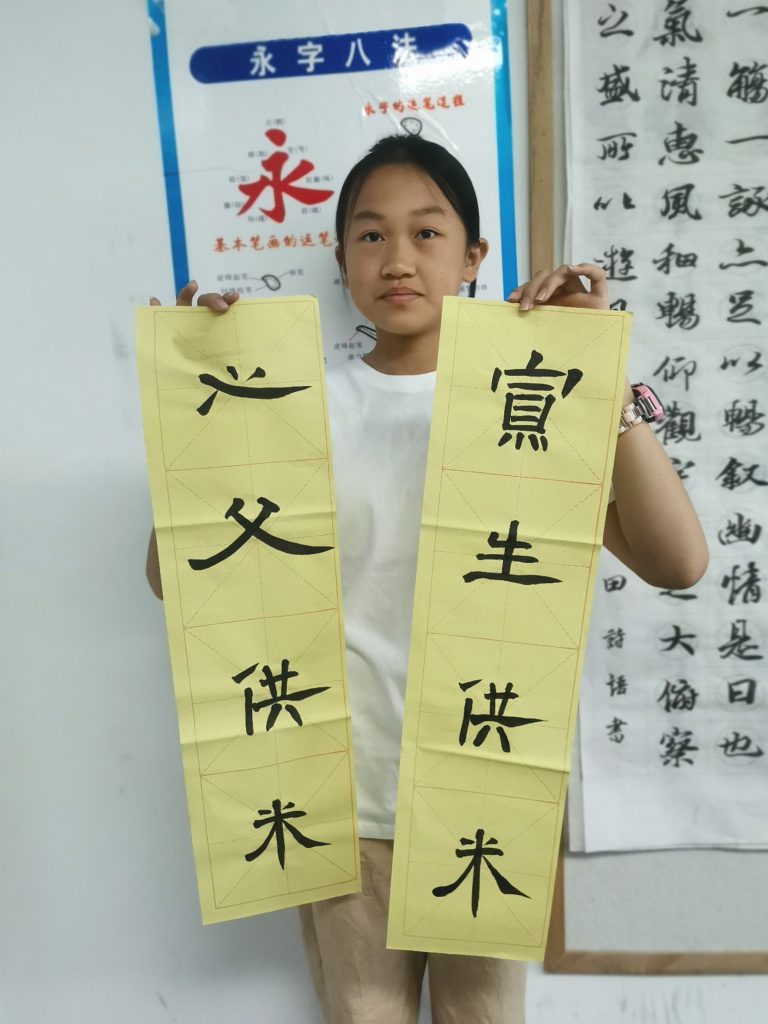 永字八法
永字的运笔过程
永
基本笔画的运笔
逆锋起笔
逆锋起笔
心父供米
生供米
一觴一詠亦足以暢叙幽情是日也
氣清惠風和暢仰觀宇之大俯察
之盛所以遊
田詩語書